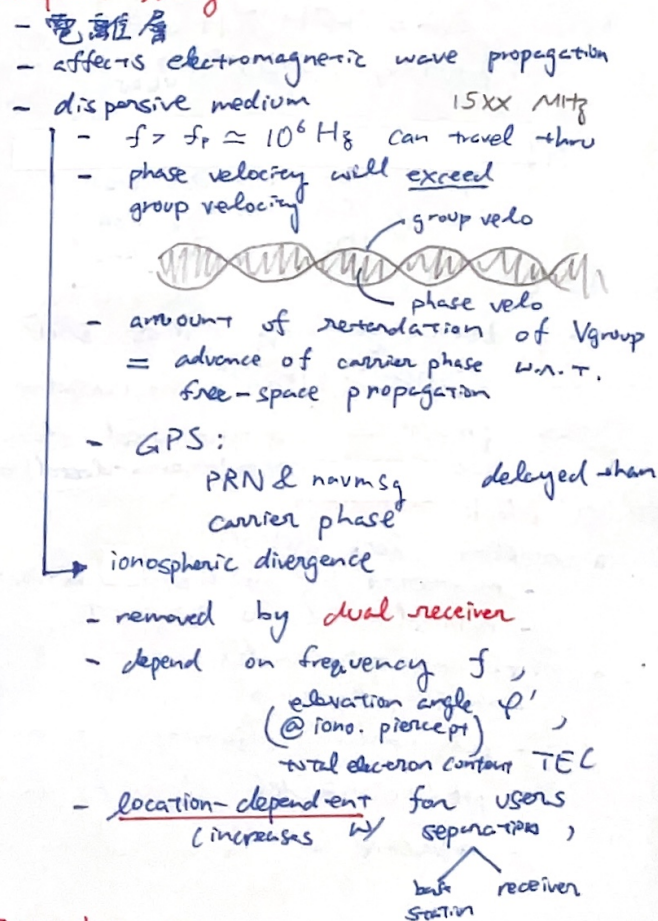 - 電離層
- affects electromagnetic wave propagation
- dispersive medium 15XX MHz
- f > fp ≃ 10⁶ Hz can travel thru
- phase velocity will exceed
group velocity
group velo
phase velo
- amount of retardation of Vgroup
= advance of carrier phase w.r.t.
free-space propagation
- GPS:
PRN & navmsg delayed than
carrier phase
ionospheric divergence
- removed by dual receiver
- depend on frequency f,
elevation angle φ',
(@ iono. piercept)
total electron content TEC
- location-dependent for users
(increases w/ separation,
base receiver
station